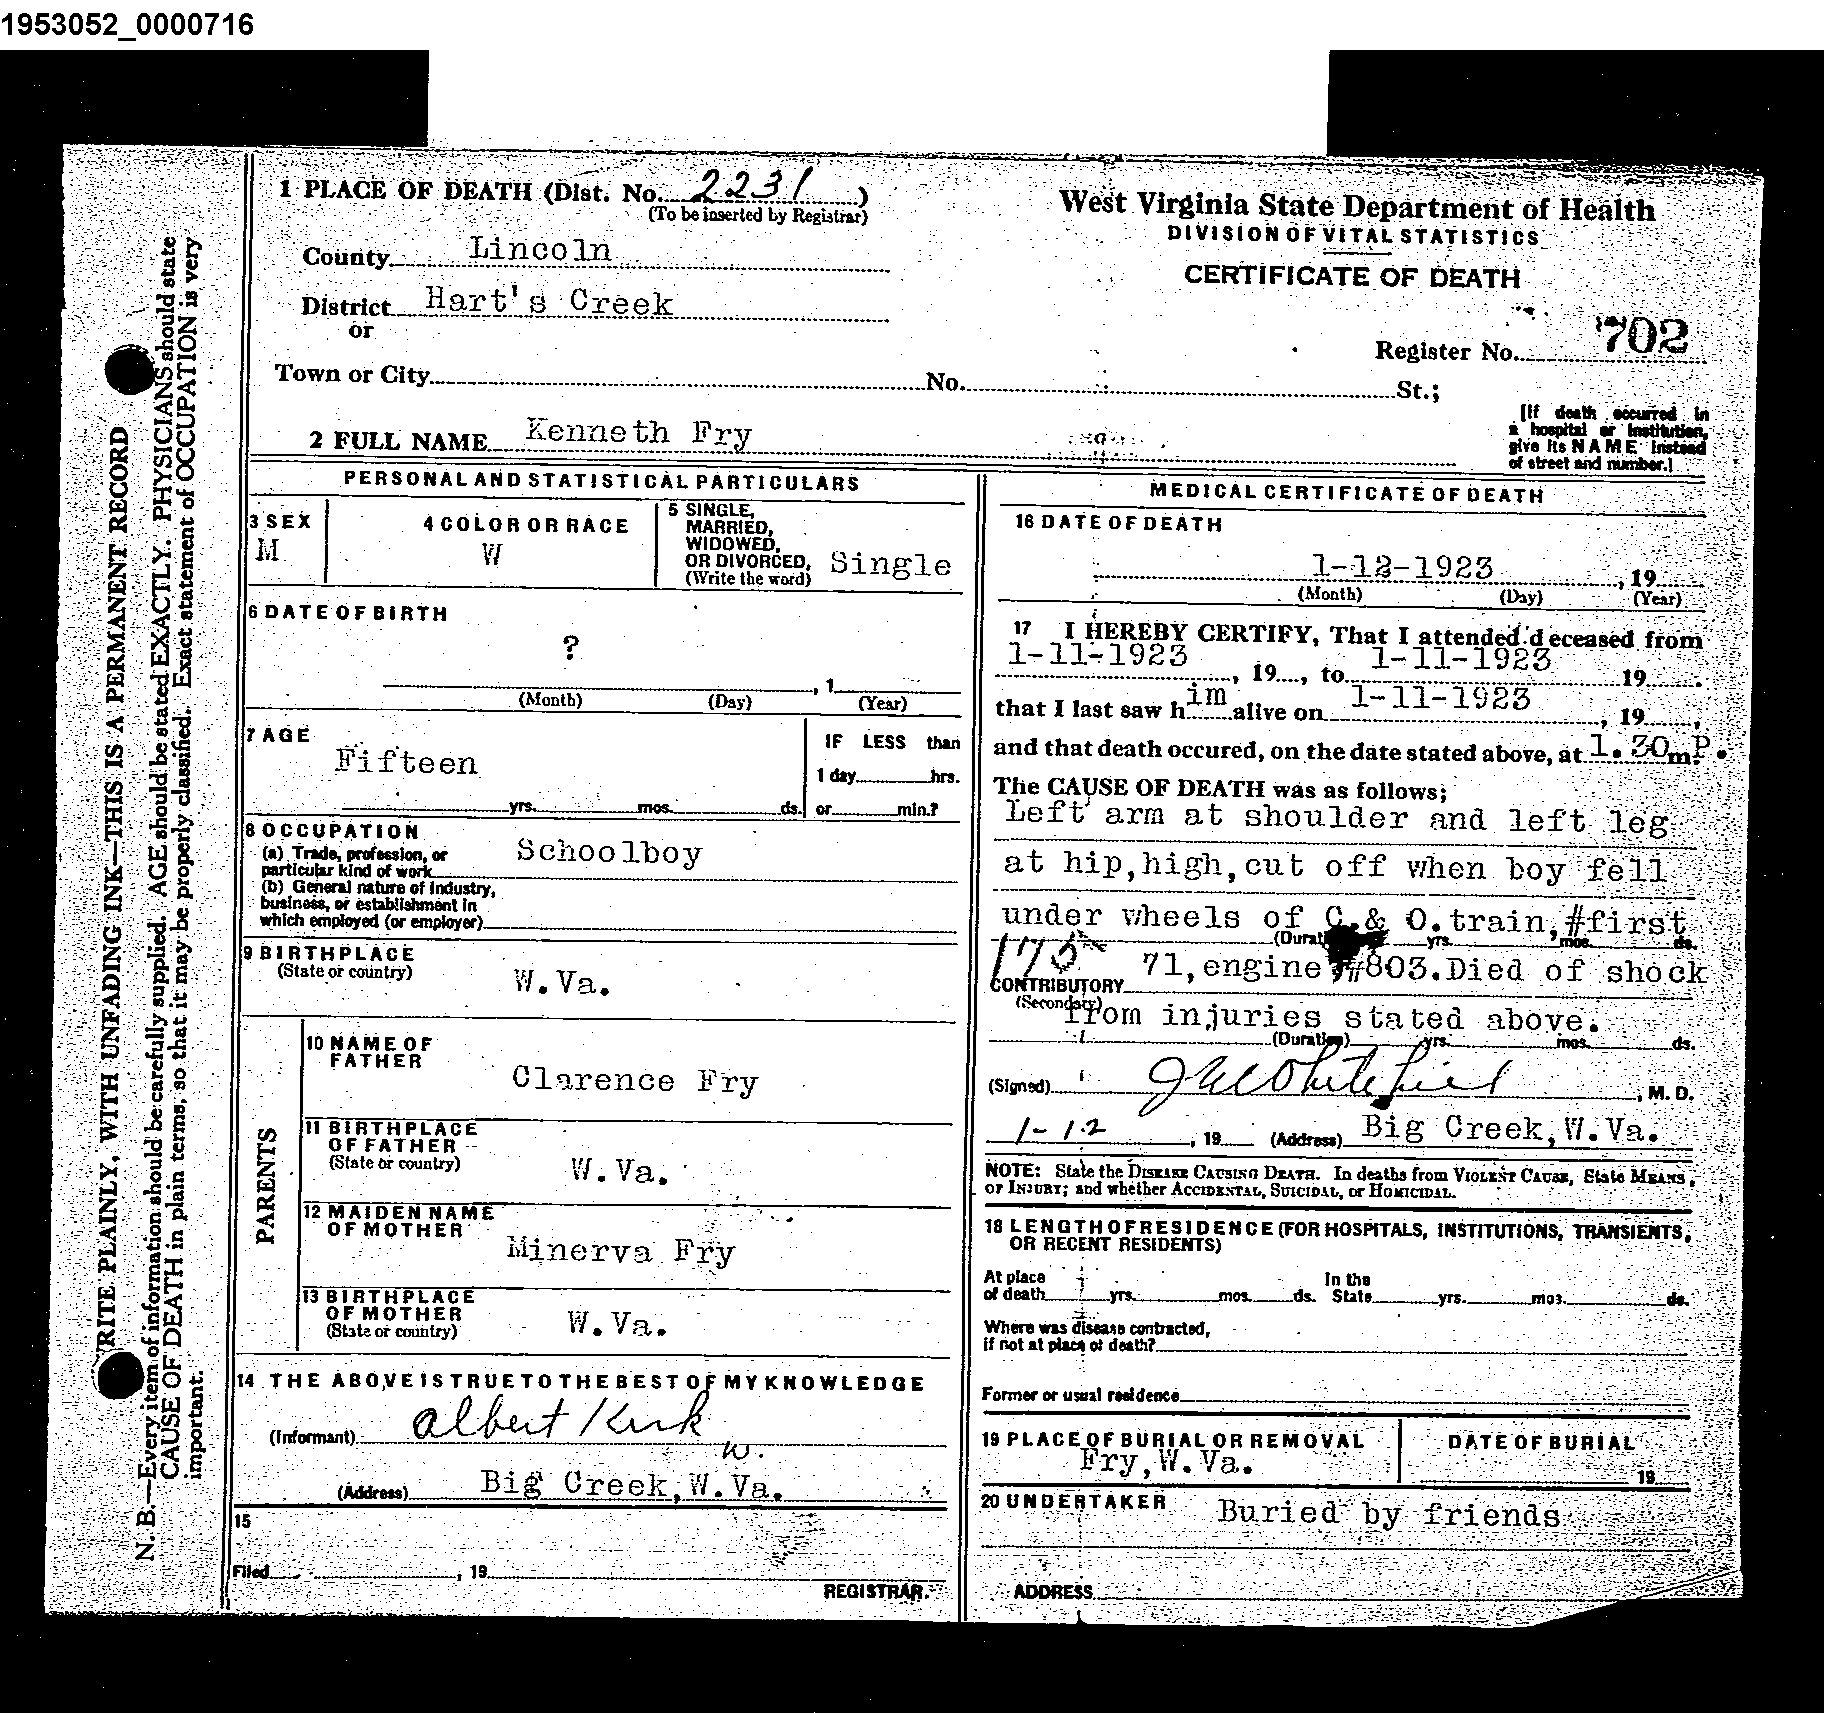 1953052_0000716
1 PLACE OF DEATH (Dist. No. 2231 )
(To be inserted by Registrar)
County Lincoln
District Hart's Creek
or
Town or City No. St.;
2 FULL NAME Kenneth Fry
West Virginia State Department of Health
DIVISION OF VITAL STATISTICS
CERTIFICATE OF DEATH
Register No. 702
[If death occurred in
a hospital or institution,
give its NAME instead
of street and number.]
PERSONAL AND STATISTICAL PARTICULARS
3 SEX
M
4 COLOR OR RACE
W
5 SINGLE,
MARRIED,
WIDOWED,
OR DIVORCED,
(Write the word)
Single
6 DATE OF BIRTH
?
, 1
(Month) (Day) (Year)
7 AGE
Fifteen
yrs. mos. ds.
IF LESS than
1 day hrs.
or min.?
8 OCCUPATION
(a) Trade, profession, or
particular kind of work
Schoolboy
(b) General nature of industry,
business, or establishment in
which employed (or employer)
9 BIRTHPLACE
(State or country)
W.Va.
PARENTS
10 NAME OF
FATHER
Clarence Fry
11 BIRTHPLACE
OF FATHER
(State or country)
W.Va.
12 MAIDEN NAME
OF MOTHER
Minerva Fry
13 BIRTHPLACE
OF MOTHER
(State or country)
W.Va.
14 THE ABOVE IS TRUE TO THE BEST OF MY KNOWLEDGE
(Informant) Albert Kirk
W.
(Address) Big Creek, W.Va.
15
Filed , 19
REGISTRAR.
MEDICAL CERTIFICATE OF DEATH
16 DATE OF DEATH
1-12-1923 , 19
(Month) (Day) (Year)
17 I HEREBY CERTIFY, That I attended deceased from
1-11-1923 , 19 , to 1-11-1923 19 .
that I last saw him alive on 1-11-1923 , 19 ,
and that death occured, on the date stated above, at 1.30 m P.
The CAUSE OF DEATH was as follows;
Left arm at shoulder and left leg
at hip,high,cut off when boy fell
under wheels of C.& O.train,#first
(Duration) yrs. mos. ds.
175 71,engine,#803.Died of shock
CONTRIBUTORY
(Secondary)
from injuries stated above.
(Duration) yrs. mos. ds.
(Signed) , M. D.
1-12 , 19 (Address) Big Creek,W.Va.
NOTE: State the DISEASE CAUSING DEATH. In deaths from VIOLENT CAUSE, State MEANS
OF INJURY; and whether ACCIDENTAL, SUICIDAL, or HOMICIDAL.
18 LENGTH OF RESIDENCE (FOR HOSPITALS, INSTITUTIONS, TRANSIENTS,
OR RECENT RESIDENTS)
At place
of death yrs. mos. ds.
In the
State yrs. mos. ds.
Where was disease contracted,
if not at place of death?
Former or usual residence
19 PLACE OF BURIAL OR REMOVAL
Fry,W.Va.
DATE OF BURIAL
19
20 UNDERTAKER Buried by friends
ADDRESS
RITE PLAINLY, WITH UNFADING INK—THIS IS A PERMANENT RECORD
N. B.—Every item of information should be carefully supplied. AGE should be stated EXACTLY. PHYSICIANS should state
CAUSE OF DEATH in plain terms, so that it may be properly classified. Exact statement of OCCUPATION is very
important.